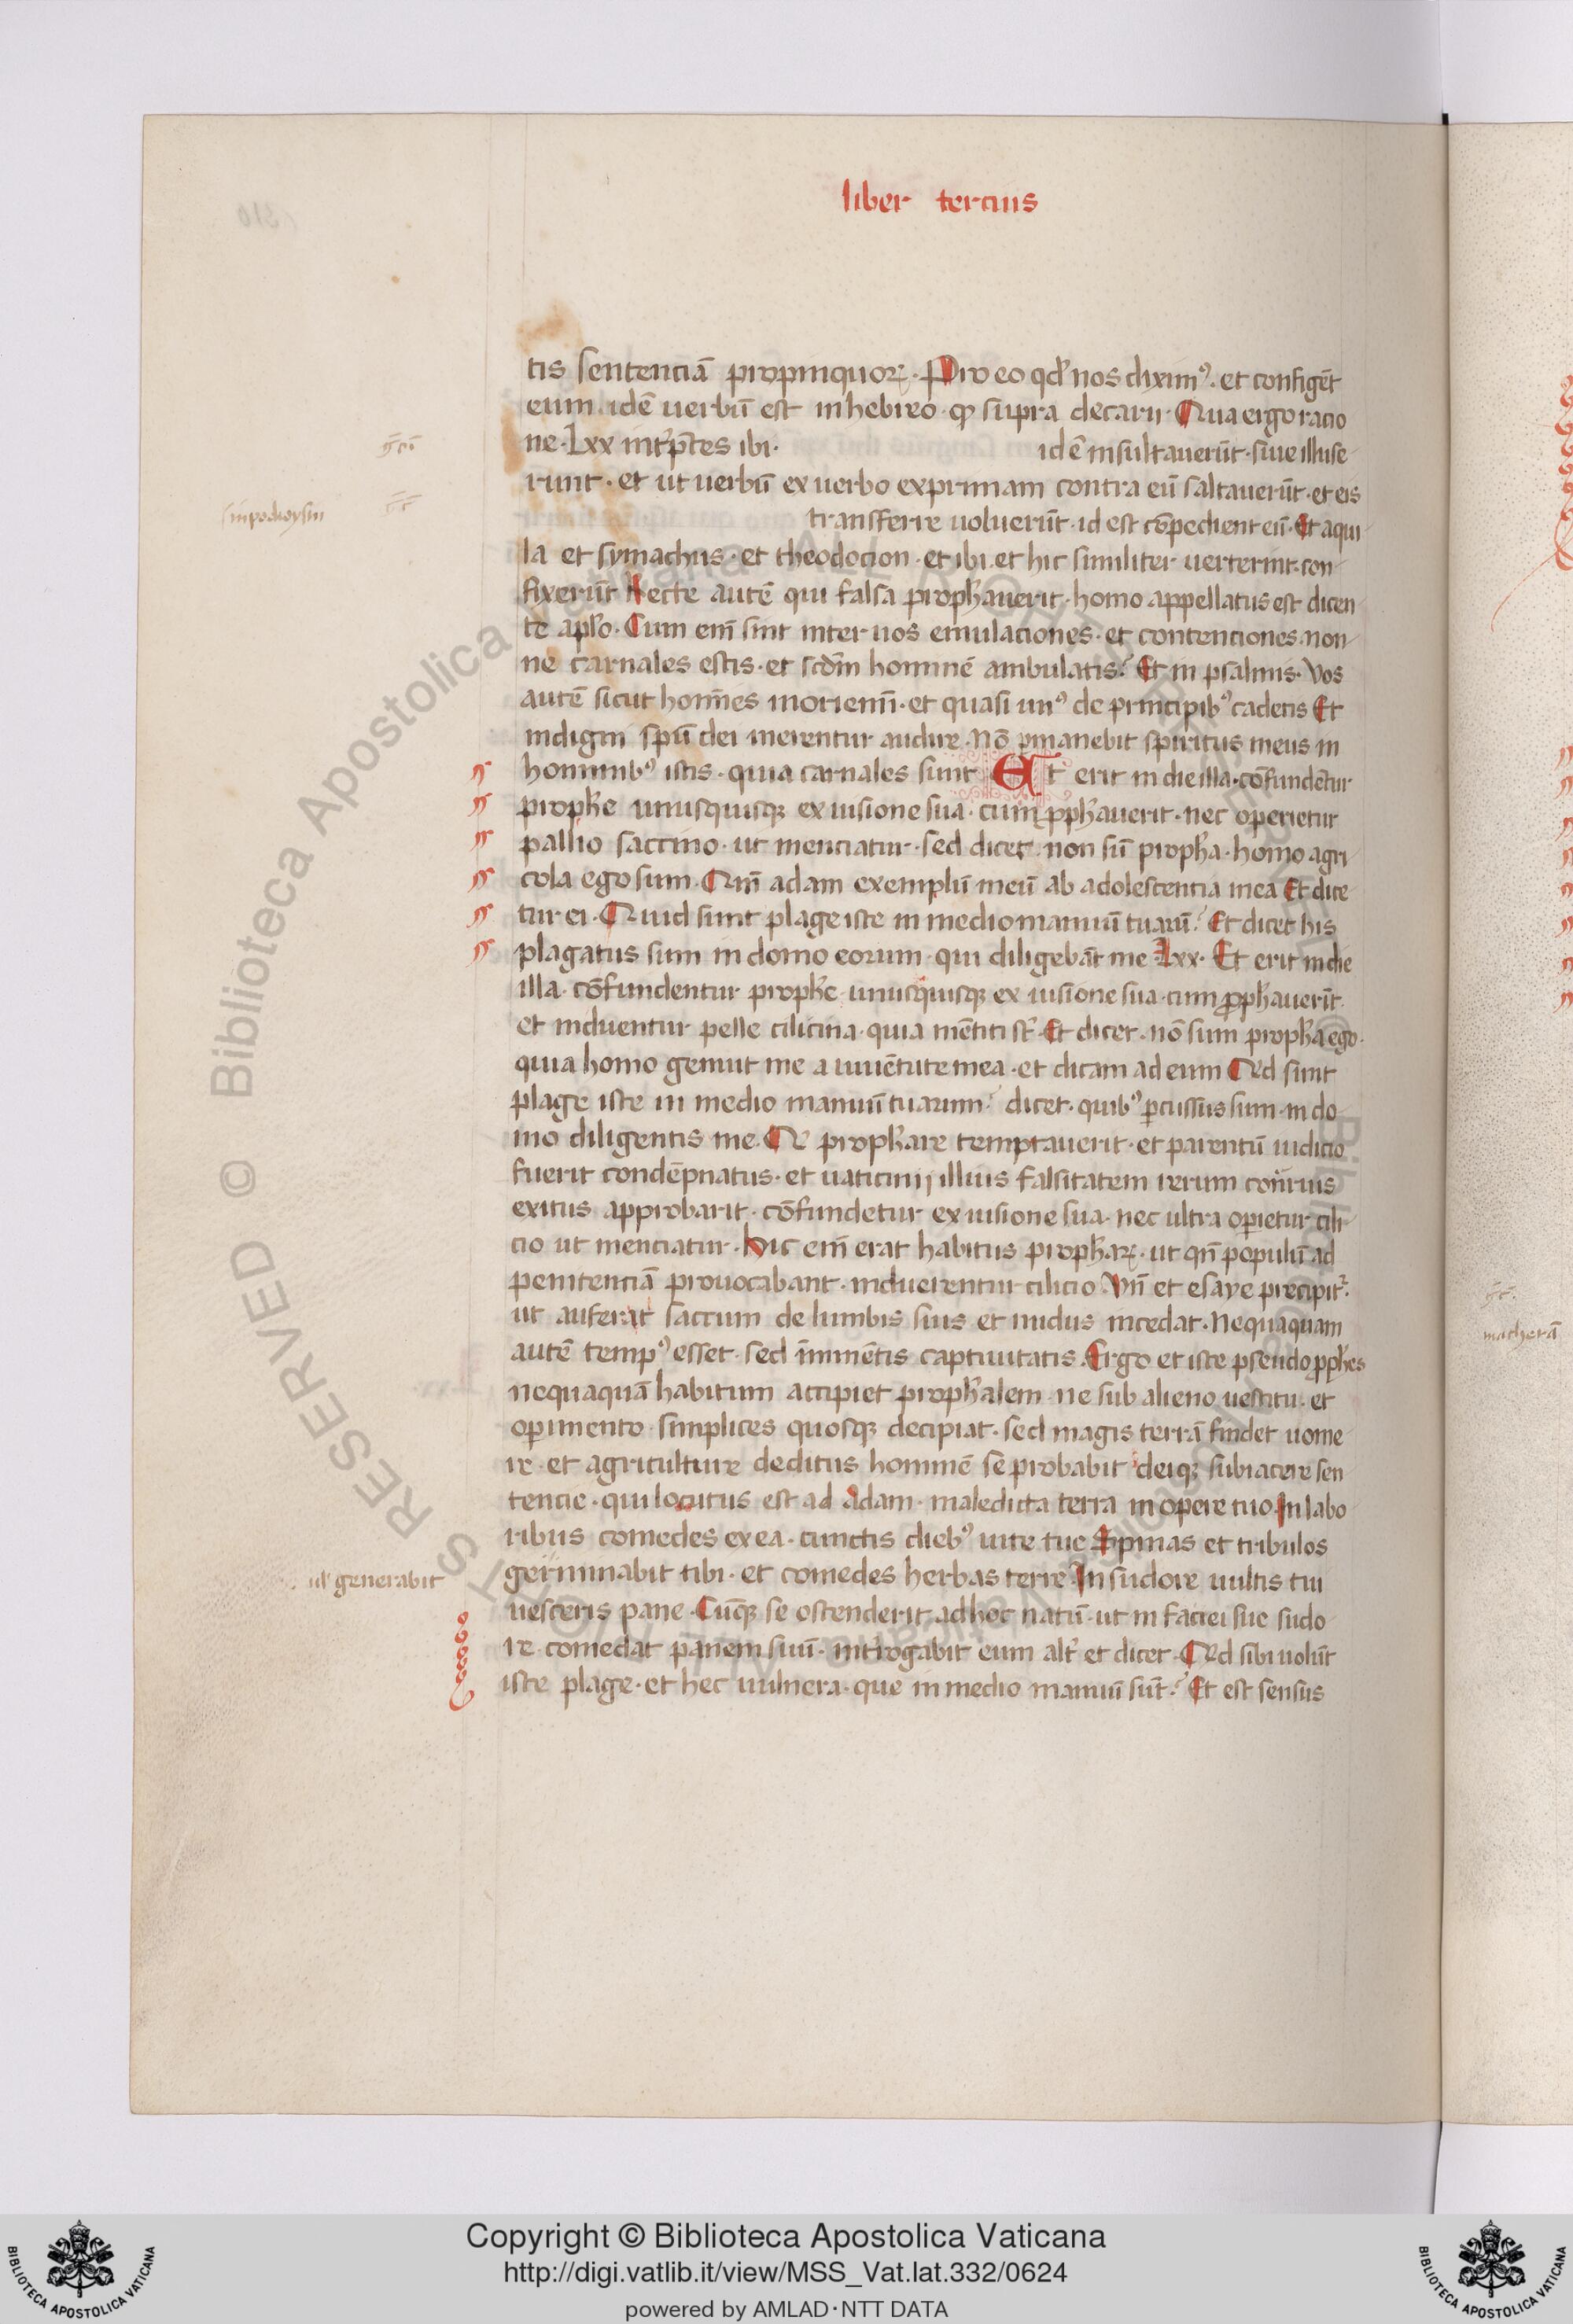 liber tercius
tis sentenciā propinquoꝝ. Pro eo qd' nos dixim9. et configēt
eum. idē uerbū est in hebreo. qd supra decarii. Qua ergo racio
ne. Lxx int'p̄tes ibi. idē insultauerūt. siue illuse
grc
runt. et ut uerbū ex uerbo exprimam contra eū saltauerūt. et eis
sinpodioysin
transferre uoluerūt. id est cōpedient eū. Et aqui
la et symachus. et theodocion. et ibi. et hic similiter uerterint. con
fixerūt Recte autē qui falsa prophauerit. homo appellatus est dicen
te aplo. Cum em̄ sint inter uos emulaciones. et contenciones. non
ne carnales estis. et scdm̄ hominē ambulatis? Et in psalmis. Vos
autē sicut homīes moriemī. et quasi un9 de principib9 cadetis Et
indigni spū dei merentur audire. Nō pmanebit spiritus meus in
hominib9 istis. quia carnales sunt Et erit in die illa. cōfundētur
prophe unusquisqꝫ ex uisione sua. cum pphauerit. nec operietur
pallio saccino. ut menciatur. sed dicet. non sū propha. homo agri
cola ego sum. Qm̄ adam exemplū meū ab adolescentia mea Et dice
tur ei. Quid sunt plage iste in medio manuū tuarū? Et dicet his
plagatus sum in domo eorum. qui diligebāt me Lxx. Et erit in die
illa. cōfundentur prophe unusquisqꝫ ex uisione sua. cum pphauerīt.
et induentur pelle cilicina. quia mētiti st̄. Et dicet. nō sum propha ego.
quia homo genuit me a iuuētute mea. et dicam ad eum Qd sunt
plage iste in medio manuū tuarum? dicet. quib9 pcussus sum. in do
mo diligentis me. Q prophare temptauerit. et parentū iudicio
fuerit condēpnatus. et uaticinij illius falsitatem rerum cont'rius
exitus approbarit. cōfundetur ex uisione sua. nec ultra opietur cili
cio ut menciatur. Hic em̄ erat habitus prophaꝝ. ut qn̄ populū ad
penitenciā prouocabant. induerentur cilicio. Vn̄ et esaye precipit'.
ut auferat saccum de lumbis suis et nudus incedat. Nequaquam
autē temp9 esset. sed īminētis captiuitatis. Ergo et iste pseudopphes
nequaquā habitum accipiet prophalem. ne sub alieno uestitu. et
opimento simplices quosqꝫ decipiat. sed magis terrā findet uome
re. et agriculture deditus hominē se probabit deiqꝫ subiacere sen
tencie. qui locutus est ad adam. maledicta terra in opere tuo. In labo
ribus comedes ex ea. cunctis dieb9 uite tue Spinas et tribulos
germinabit tibi. et comedes herbas terre In sudore uultis tui
ul' generabit
uesceris pane. Cūqꝫ se ostenderit ad hoc natū. ut in faciei sue sudo
re comedat panem suū. int'rogabit eum alt' et dicet. Qd sibi uolūt
iste plage. et hec uulnera. que in medio manuū sūt? Et est sensus
macherā
Copyright © Biblioteca Apostolica Vaticana
http://digi.vatlib.it/view/MSS_Vat.lat.332/0624
powered by AMLAD·NTT DATA
BIBLIOTECA APOSTOLICA VATICANA
BIBLIOTECA APOSTOLICA VATICANA